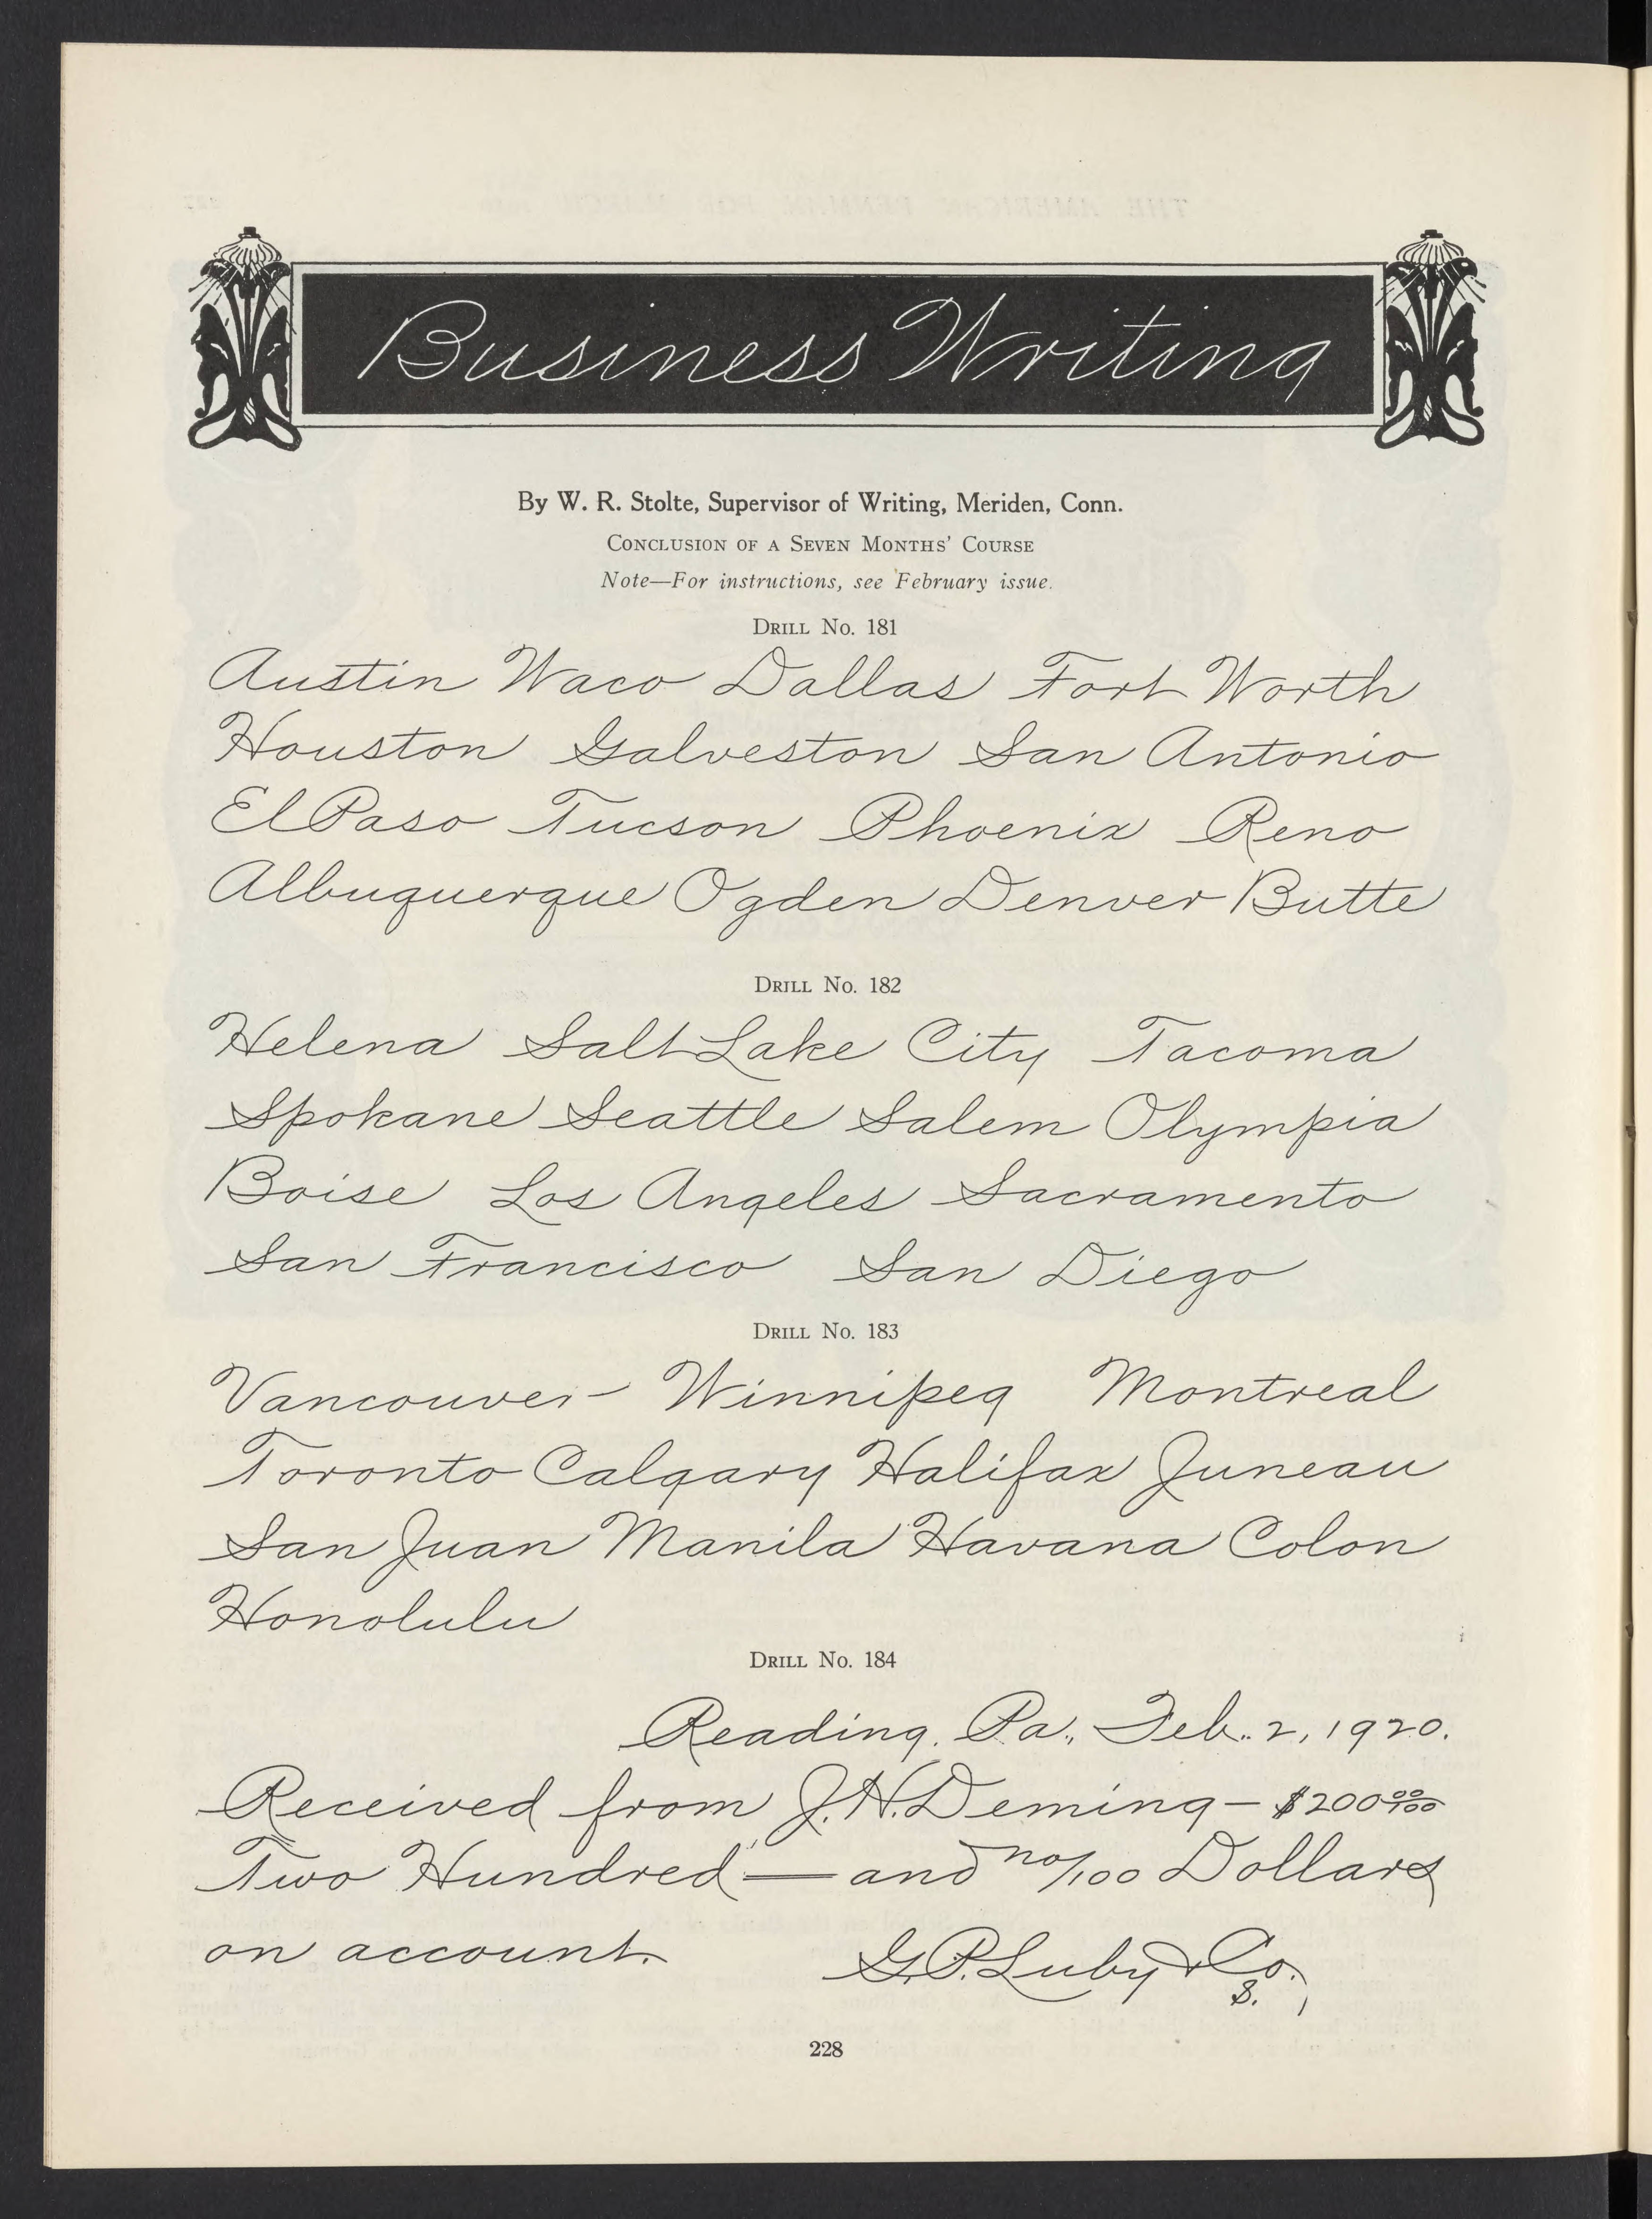 Business Writing
By W. R. Stolte, Supervisor of Writing, Meriden, Conn.
Conclusion of a Seven Months' Course
Note—For instructions, see February issue.
Drill No. 181
Austin Waco Dallas Fort Worth
Houston Galveston San Antonio
El Paso Tucson Phoenix Reno
Albuquerque Ogden Denver Butte
Drill No. 182
Helena Salt Lake City Tacoma
Spokane Seattle Salem Olympia
Boise Los Angeles Sacramento
San Francisco San Diego
Drill No. 183
Vancouver Winnipeg Montreal
Toronto Calgary Halifax Juneau
San Juan Manila Havana Colon
Honolulu
Drill No. 184
Reading, Pa., Feb. 2, 1920.
Received from J. H. Deming — $200 00/100
Two Hundred — and no/100 Dollars
on account.
G. P. Luby & Co.
S.
228